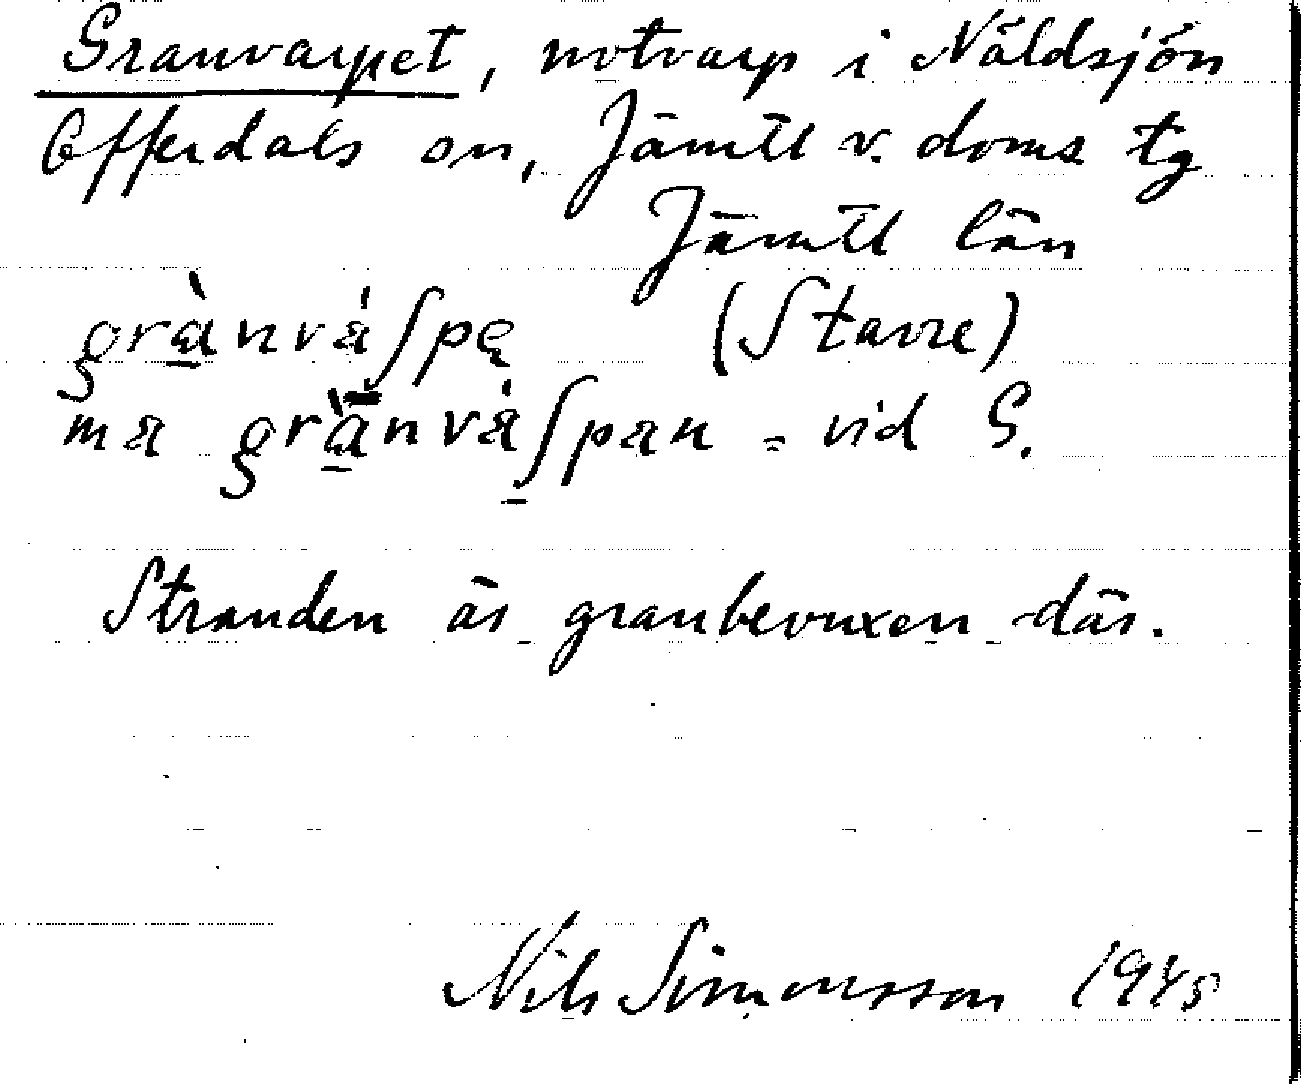 Granvarpet, notvarp i Näldsjön
Offerdals sn, Jämtl v. doms tg
Jämtl län
grànváʃpę (Stavre)
ma grànváʃpan = vid G.
Stranden är granbevuxen där.
Nils Simonsson 1945